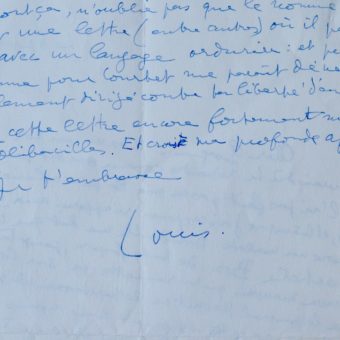 pas que le
une lettre (entre autres) où il p
avec un langage ordurier : et pe
pour Courbet me paraît dene
lement dirigé contre la liberté d'an
cette lettre encore fortement
colibacilles. Et crois ma profonde a
Je t'embrasse
Louis.